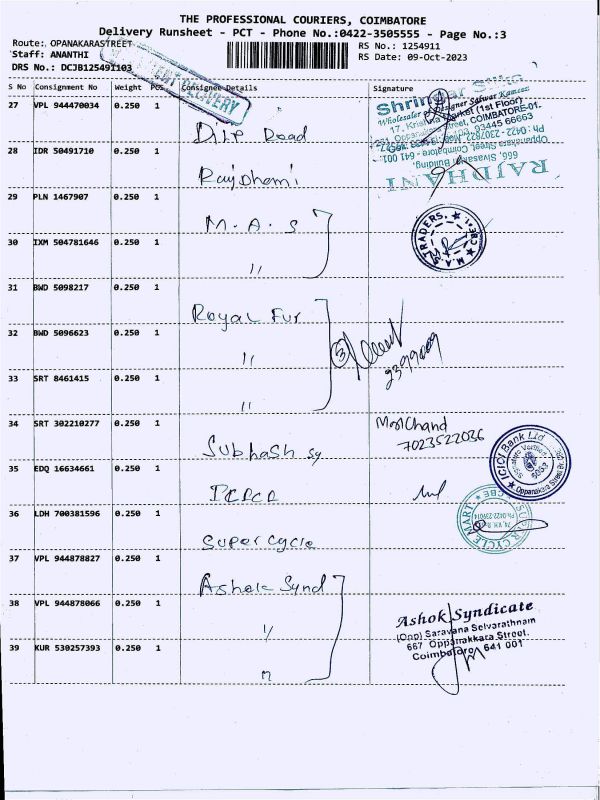 THE PROFESSIONAL COURIERS, COIMBATORE
Delivery Runsheet - PCT - Phone No.:0422-3505555 - Page No.:3
Route: OPANAKARASTREET RS No.: 1254911
Staff: ANANTHI RS Date: 09-Oct-2023
DRS No.: DCJB1254911103
S No Consignment No Weight PCS Consignee Details Signature
27 VPL 944470034 0.250 1
Road
28 IDR 50491710 0.250 1
29 PLN 1467907 0.250 1
M.A.S
30 IXM 504781646 0.250 1
"
31 BWD 5098217 0.250 1
Royal Fur
32 BWD 5096623 0.250 1
" 3
33 SRT 8461415 0.250 1
"
34 SRT 302210277 0.250 1
Subhash sy
7023522036
35 EDQ 16634661 0.250 1
36 LDH 700381596 0.250 1
Super cycle
37 VPL 944878827 0.250 1
Ashok Synd
38 VPL 944878066 0.250 1
"
39 KUR 530257393 0.250 1
"
DELIVERY
Designer Salwar Kameez
(1st Floor)
COIMBATORE-01.
RAJDHANI
M.A. TRADERS. CBE
ICICI Bank Ltd
SUPER CYCLE MART CBE
Ashok Syndicate
(Opp) Saravana Selvarathnam
667 Oppanakkara Street.
Coimbatore 641 001